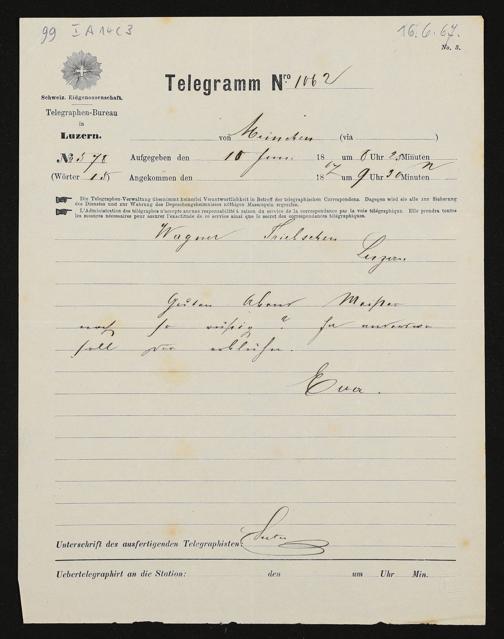 99 I A 14 c 3
16.6.67.
No. 3.
Telegramm Nro 1062
Schweiz. Eidgenossenschaft.
Telegraphen-Bureau
in
Luzern.
von München (via )
No 578 Aufgegeben den 16 Juni 1867 um 8 Uhr 25 Minuten
(Wörter 15 Angekommen den 1867 um 9 Uhr 30 Minuten
Die Telegraphen-Verwaltung übernimmt keinerlei Verantwortlichkeit in Betreff der telegraphischen Correspondenz. Dagegen wird sie alle zur Sicherung
des Dienstes und zur Wahrung des Depeschengeheimnisses nöthigen Massregeln ergreifen.
L'Administration des télégraphes n'accepte aucune responsabilité à raison du service de la correspondance par la voie télégraphique. Elle prendra toutes
les mesures nécessaires pour assurer l'exactitude de ce service ainsi que le secret des correspondances télégraphiques.
Wagner Triebschen
Luzern
Guten Abend Meister
noch so
soll der
Eva.
Unterschrift des ausfertigenden Telegraphisten:
Uebertelegraphirt an die Station: den um Uhr Min.